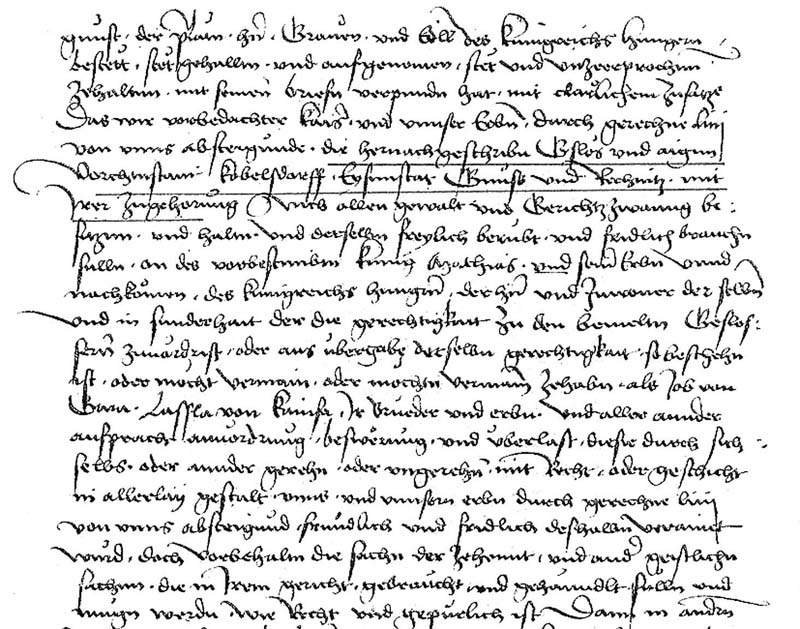 gunst · der prelaten · hrn · Graven · und Edll des kunigreichs Hungern ·
bestett · stet gehalltn · und aufgenomen · stet und unzerprochen
zehaltn · mit seinen briefn verpundn hat · mit clarlichem zusatze
Das wir vorbedachter kaiser · und unnser Erbn · durch gerechne linij
von unns absteigunde · die hernachgeschribn Gslos und aigen
Vorchtnstain · kobelsdorff · Eysnnstat · Gunss und Rechnitz · mit
irer Zugehorung · Auch allen gewalt und Gerichtzzwanng be-
sitzen · und haltn · und derselbn freylich berubt · und fridlich brauchn
sulln · an des vorbestimbtn kunig Mathias · und seinr Erbn unnd
nachkomen · des kunigreichs hungern · der hrn und Innwoner der selbn
und in sunderhait der die gerechtigkait zu den bemeltn Gslos-
sern zuvordrist · oder aus ubergabe derselbn gerechtigkait · so beschehn
ist · oder mocht vermain · oder mochtn vermain zehabn · als Job von
Gara · Lassla von kanisa · Ir brueder und erbn · und aller annder
ansprach anvordrung · beswerung · und uberlast · diesie durch sich
selbs · oder annder gerechn · oder ungerechn · mit Recht · oder geschicht
in allerlay gestalt · unns · und unnsern erbn durch gerechne linij
von unns absteigund · frundlich und fridlich deshalbn veraint
wurd · doch vorbehaltn die sachn der zehennt · und ander geistlichn
sachnn · die in Irem gericht · gebraucht · und gehanndlt sulln und
mugn werdn · wie Recht und gepurlich ist Dann in andrn